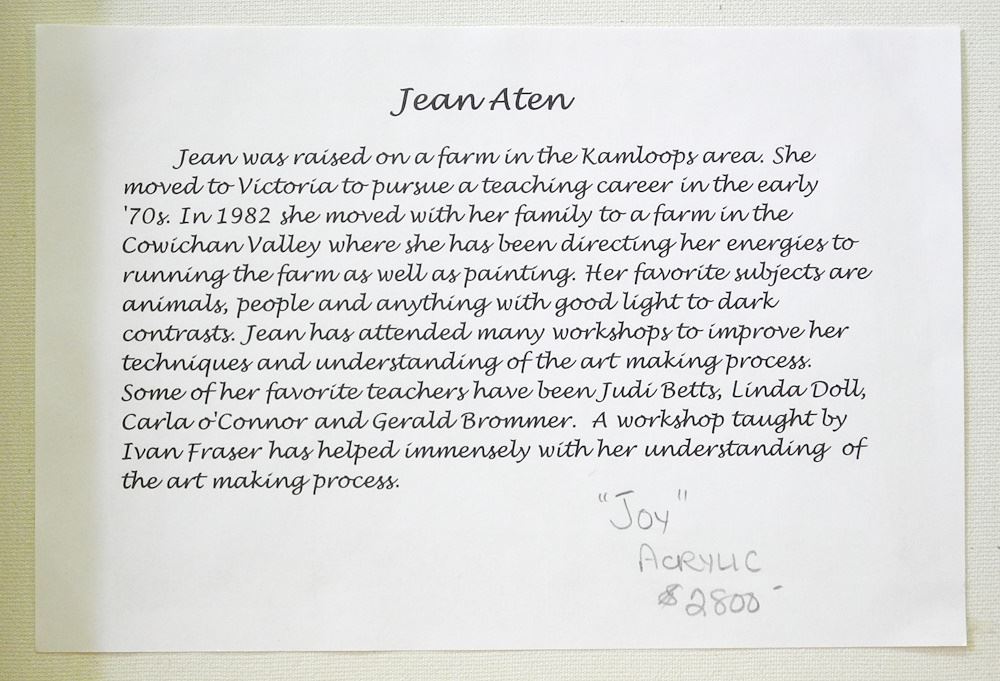 Jean Aten
Jean was raised on a farm in the Kamloops area. She
moved to Victoria to pursue a teaching career in the early
'70s. In 1982 she moved with her family to a farm in the
Cowichan Valley where she has been directing her energies to
running the farm as well as painting. Her favorite subjects are
animals, people and anything with good light to dark
contrasts. Jean has attended many workshops to improve her
techniques and understanding of the art making process.
Some of her favorite teachers have been Judi Betts, Linda Doll,
Carla o'Connor and Gerald Brommer. A workshop taught by
Ivan Fraser has helped immensely with her understanding of
the art making process.
"Joy"
ACRYLIC
$2800-